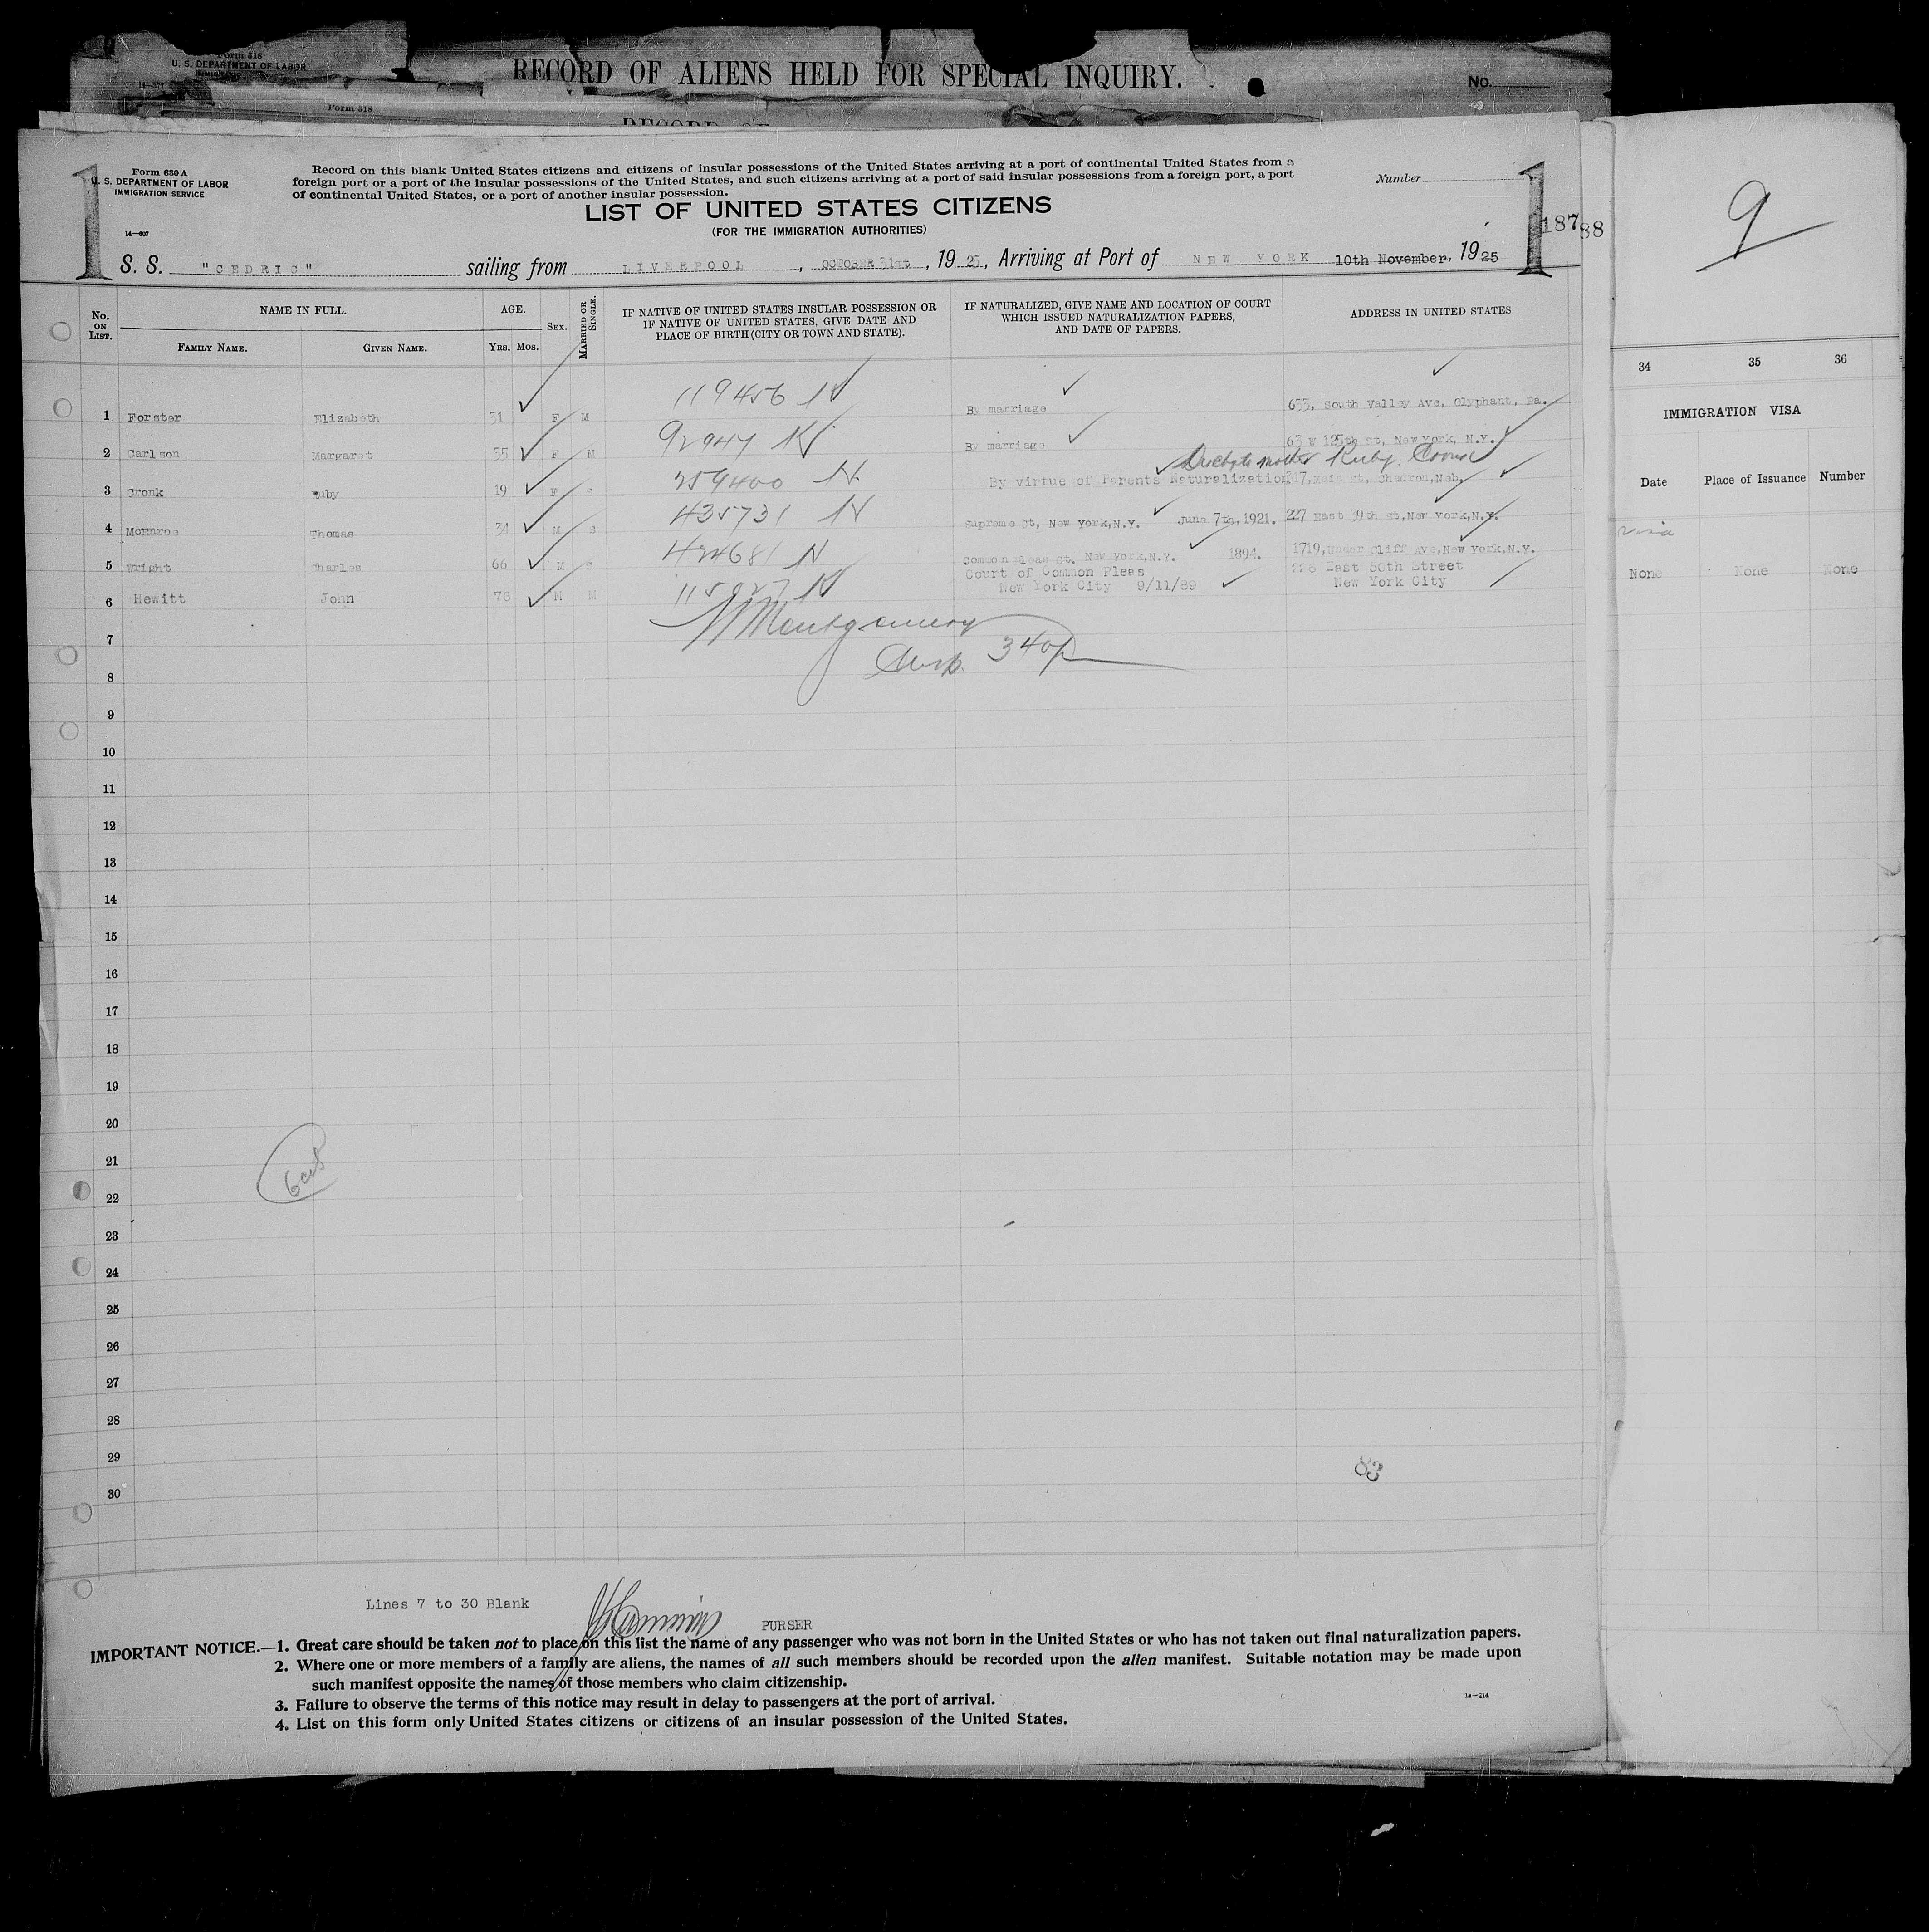 Form 518
U. S. DEPARTMENT OF LABOR
RECORD OF ALIENS HELD FOR SPECIAL INQUIRY.
No.
Form 518
RECORD OF
Form 630 A
U. S. DEPARTMENT OF LABOR
IMMIGRATION SERVICE
14—607
1
Record on this blank United States citizens and citizens of insular possessions of the United States arriving at a port of continental United States from a
foreign port or a port of the insular possessions of the United States, and such citizens arriving at a port of said insular possessions from a foreign port, a port
of continental United States, or a port of another insular possession.
Number
1
187
88
9
LIST OF UNITED STATES CITIZENS
(FOR THE IMMIGRATION AUTHORITIES)
S. S. "CEDRIC" sailing from LIVERPOOL, OCTOBER 31st, 1925, Arriving at Port of NEW YORK 10th November, 1925
No. ON LIST. NAME IN FULL. AGE. SEX. MARRIED OR SINGLE. IF NATIVE OF UNITED STATES INSULAR POSSESSION OR IF NATIVE OF UNITED STATES, GIVE DATE AND PLACE OF BIRTH (CITY OR TOWN AND STATE). IF NATURALIZED, GIVE NAME AND LOCATION OF COURT WHICH ISSUED NATURALIZATION PAPERS, AND DATE OF PAPERS. ADDRESS IN UNITED STATES
FAMILY NAME. GIVEN NAME. YRS. MOS.
34 35 36
IMMIGRATION VISA
Date Place of Issuance Number
1 Forster Elizabeth 31 F M 119456 N By marriage 633, South Valley Ave, Olyphant, Pa.
2 Carlson Margaret 35 F M 92947 N By marriage 63 W 125th st, New York, N.Y.
mother Ruby
3 Cronk Ruby 19 F S 259400 N By virtue of Parents Naturalization 317, Main st, Chadron, Neb.
4 McEnroe Thomas 34 M S 435731 N Supreme ct, New York, N.Y. June 7th, 1921. 227 East 39th st, New York, N.Y.
5 Wright Charles 66 M S 424681 N Common pleas ct, New York, N.Y. 1894. 1719, Under Cliff Ave, New York, N.Y.
6 Hewitt John 76 M M 115027 N Court of Common Pleas New York City 9/11/89 East 50th Street New York City
None None None
Montgomery
Insp. 340p
7
8
9
10
11
12
13
14
15
16
17
18
19
20
21
22
23
24
25
26
27
28
29
30
83
Lines 7 to 30 Blank
PURSER
IMPORTANT NOTICE.—1. Great care should be taken not to place on this list the name of any passenger who was not born in the United States or who has not taken out final naturalization papers.
2. Where one or more members of a family are aliens, the names of all such members should be recorded upon the alien manifest. Suitable notation may be made upon
such manifest opposite the names of those members who claim citizenship.
3. Failure to observe the terms of this notice may result in delay to passengers at the port of arrival.
14—214
4. List on this form only United States citizens or citizens of an insular possession of the United States.